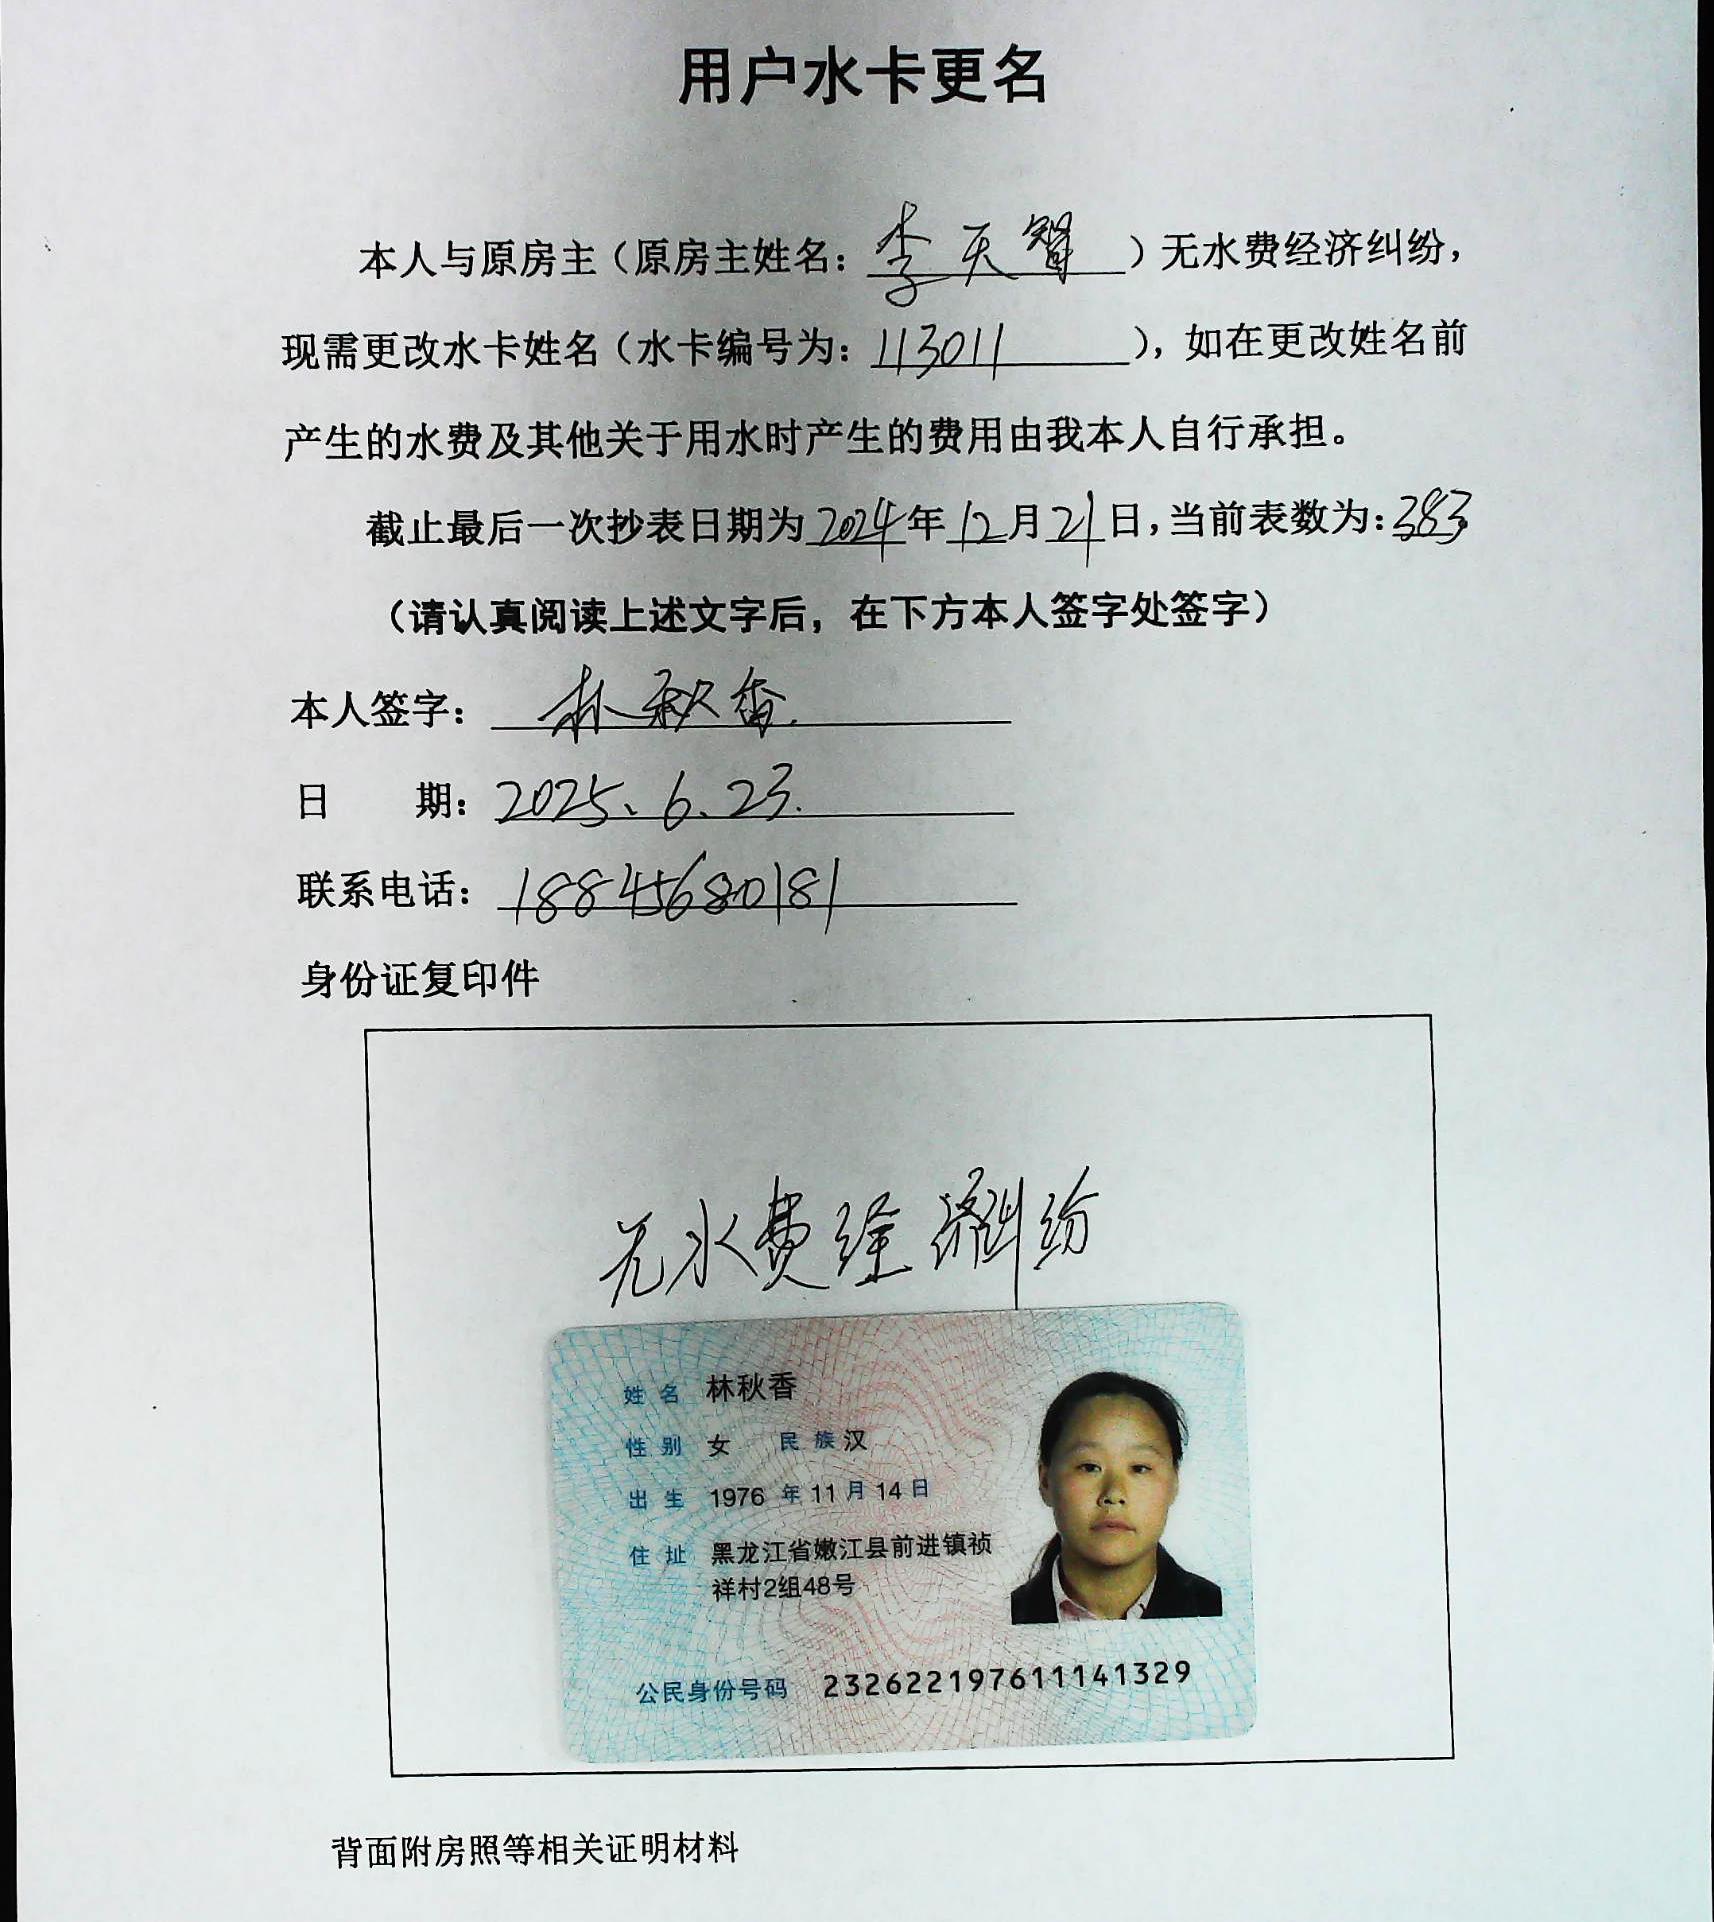 用户水卡更名
本人与原房主（原房主姓名：李天智）无水费经济纠纷，
现需更改水卡姓名（水卡编号为：113011），如在更改姓名前
产生的水费及其他关于用水时产生的费用由我本人自行承担。
截止最后一次抄表日期为2024年12月21日，当前表数为：383
（请认真阅读上述文字后，在下方本人签字处签字）
本人签字：林秋香.
日 期：2025、6、23.
联系电话：18845680181
身份证复印件
无水费经济纠纷
姓名 林秋香
性别 女 民族 汉
出生 1976 年 11 月 14 日
住址 黑龙江省嫩江县前进镇祯
祥村2组48号
公民身份号码 232622197611141329
背面附房照等相关证明材料